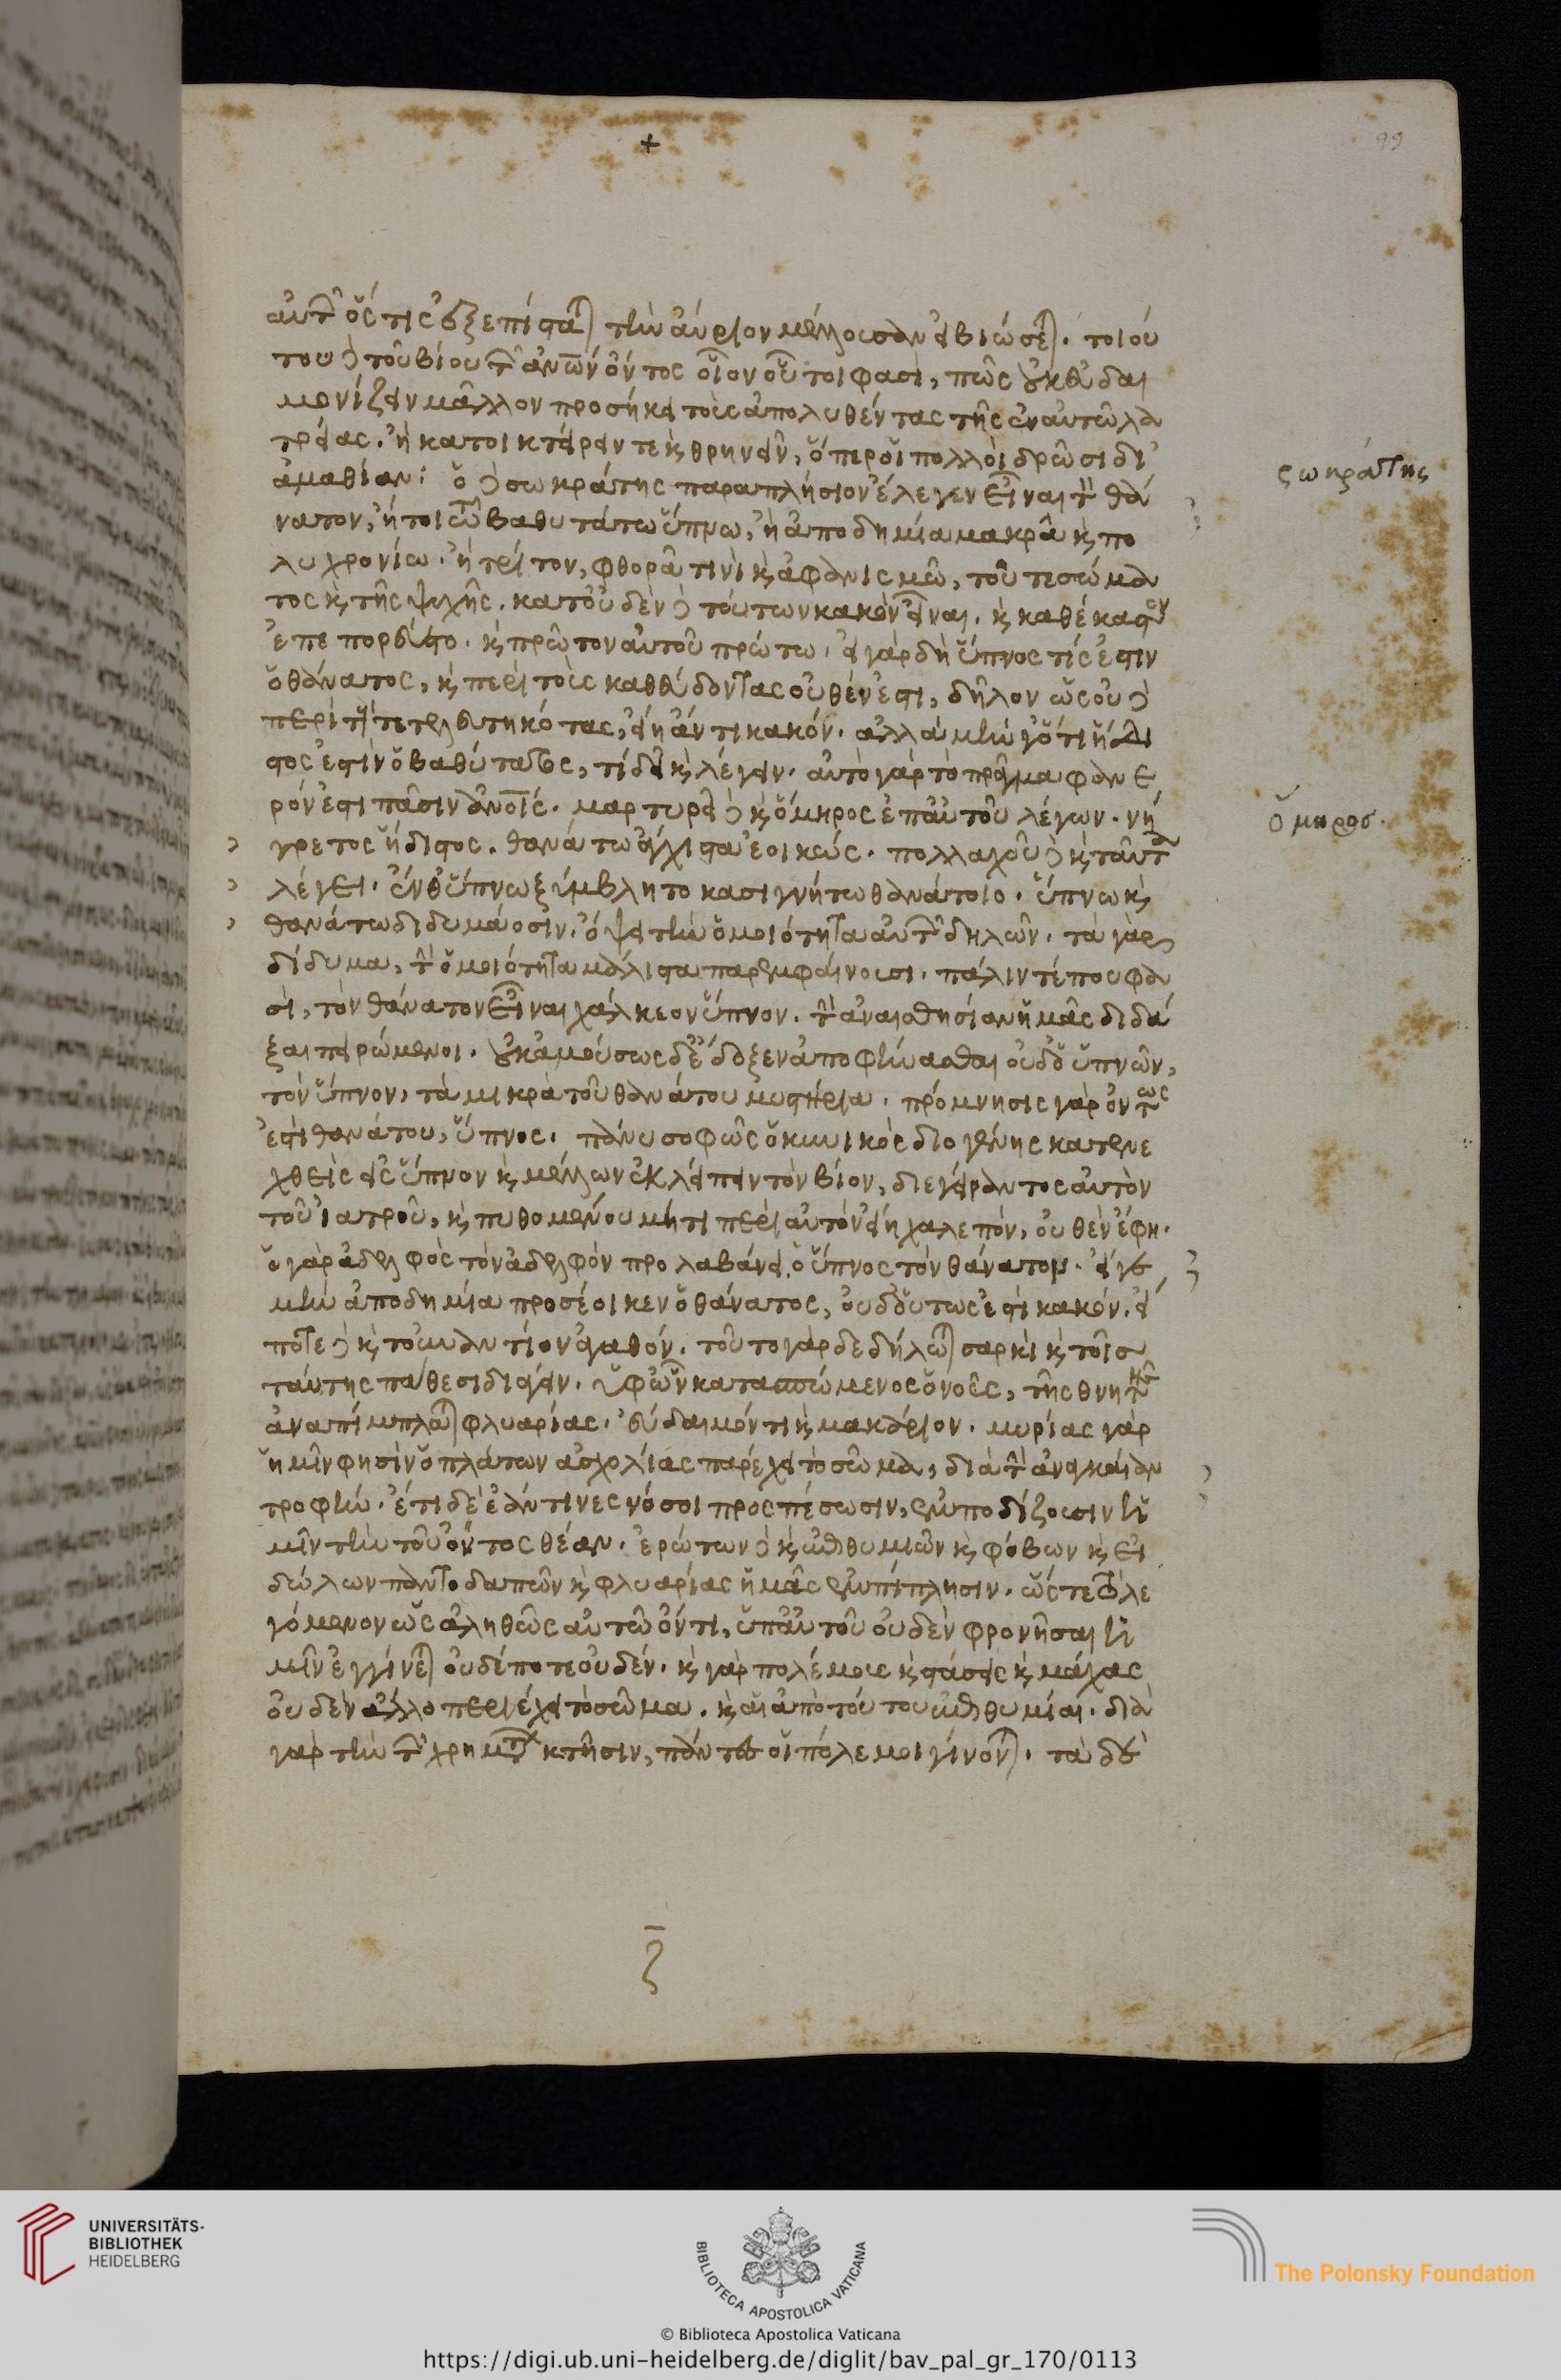 αὐτῶν ὅστις ἐξεπίσταται τὴν αὔριον μέλλουσαν εἰ βιώσεται. τοιού
του δὲ τοῦ βίου τῶν ἀνῶν ὄντος οἷον οὗτοι φασὶ, πῶς οὐκ εὐδαι
μονίζειν μᾶλλον προσήκει τοὺς ἀπολυθέντας τῆς ἐν αὐτῶ λα
τρείας. ἢ κατοικτείρειν τε καὶ θρηνεῖν, ὅπερ οἱ πολλοὶ δρῶσι δι'
ἀμαθίαν: ὁ δὲ σωκράτης παραπλήσιον ἔλεγεν εἶναι τὸν θά
σωκράτης
νατον, ἤτοι τῶ βαθυτάτω ὕπνω, ἢ ἀποδημία μακρᾶ καὶ πο
λυχρονίω. ἢ τρίτον, φθορᾶ τινὶ καὶ ἀφανισμῶ, τοῦ τε σώμα
τος καὶ τῆς ψυχῆς. κατ' οὐδὲν δὲ τούτων κακὸν εἶναι. καὶ καθέκαστον
ἐπεπορεύετο. καὶ πρῶτον αὐτοῦ πρώτω. εἰ γὰρ δὴ ὕπνος τίς ἐστιν
ὁ θάνατος, καὶ περὶ τοὺς καθεύδοντας οὐθέν ἐστι, δῆλον ὡς οὐδὲ
περὶ τοὺς τετελευτηκότας, εἴη ἄν τι κακόν. ἀλλὰ μὴν γ' ὅτι ἥδι
στος ἐστὶν ὁ βαθύτατος, τί δεῖ καὶ λέγειν. αὐτὸ γὰρ τὸ πρᾶγμα φανε
ρόν ἐστι πᾶσιν ἀνοῖς. μαρτυρεῖ δὲ καὶ ὅμηρος ἐπ' αὐτοῦ λέγων. νή
ὅμηρος.
γρετος ἥδιστος. θανάτω ἄγχιστα ἐοικώς. πολλαχοῦ δὲ καὶ ταῦτα
λέγει. ἔνθ' ὕπνω ξύμβλητο κασιγνήτω θανάτοιο. ὕπνω καὶ
θανάτω διδυμάοσιν. ὄψει τὴν ὁμοιότητα αὐτῶν δηλῶν. τὰ γὰρ
δίδυμα, τὴν ὁμοιότητα μάλιστα παρεμφαίνουσι. πάλιν τέ που φα
σὶ, τὸν θάνατον εἶναι χάλκεον ὕπνον. τὴν ἀναισθησίαν ἡμᾶς διδά
ξαι πειρώμενοι. οὐκ ἀμούσως δὲ ἔδοξεν ἀποφήνασθαι οὐδ' ὁ ὑπνῶν,
τὸν ὕπνον, τὰ μικρὰ τοῦ θανάτου μυστήρια. πρόμνησις γὰρ ὄντως
ἐστὶ θανάτου, ὕπνος. πάνυ σοφῶς ὁ κυνικὸς διογένης κατενε
χθεὶς εἰς ὕπνον καὶ μέλλων ἐκλείπειν τὸν βίον, διεγείραντος αὐτὸν
τοῦ ἰατροῦ, καὶ πυθομένου μή τι περὶ αὐτὸν εἴη χαλεπόν, οὐθὲν ἔφη.
ὁ γὰρ ἀδελφὸς τὸν ἀδελφὸν προλαβάνει. ὁ ὕπνος τὸν θάνατον. εἴγε
μὴν ἀποδημία προσέοικεν ὁ θάνατος, οὐδ' οὕτως ἐστὶ κακόν. εἰ
ποτε δὲ καὶ τοὐναντίον ἀγαθόν. τοῦτο γὰρ δεδήλωται σαρκὶ καὶ τοῖς
ταύτης πάθεσι διάγειν. ὑφ' ὧν κατασπώμενος ὁ νοῦς, τῆς θνητῆς
ἀναπίμπλαται φλυαρίας. εὔδαιμόν τι καὶ μακάριον. μυρίας γὰρ
ἡμῖν φησὶν ὁ πλάτων ἀσχολίας παρέχει τὸ σῶμα, διὰ τὴν ἀναγκαίαν
τροφήν. ἔτι δὲ ἐάν τινες νόσοι προσπέσωσιν, ἐμποδίζουσιν ἡ
μῖν τὴν τοῦ ὄντος θέαν. ἐρώτων δὲ καὶ ἐπιθυμιῶν καὶ φόβων καὶ εἰ
δώλων παντοδαπῶν καὶ φλυαρίας ἡμᾶς ἐμπίπλησιν. ὥστε τὸ λε
γόμενον ὡς ἀληθῶς αὐτῶ ὄντι, ὑπ' αὐτοῦ οὐδὲν φρονῆσαι ἡ
μῖν ἐγγίνεται οὐδέποτε οὐδέν. καὶ γὰρ πολέμους καὶ στάσεις καὶ μάχας
οὐδὲν ἄλλο περιέχει τὸ σῶμα. καὶ αἱ ἀπὸ τούτου ἐπιθυμίαι. διὰ
γὰρ τὴν τῶν χρημάτων κτῆσιν, πάντες οἱ πόλεμοι γίνονται. τὰ δὲ
ζ
UNIVERSITÄTS-
BIBLIOTHEK
HEIDELBERG
BIBLIOTECA APOSTOLICA VATICANA
The Polonsky Foundation
© Biblioteca Apostolica Vaticana
https://digi.ub.uni-heidelberg.de/diglit/bav_pal_gr_170/0113